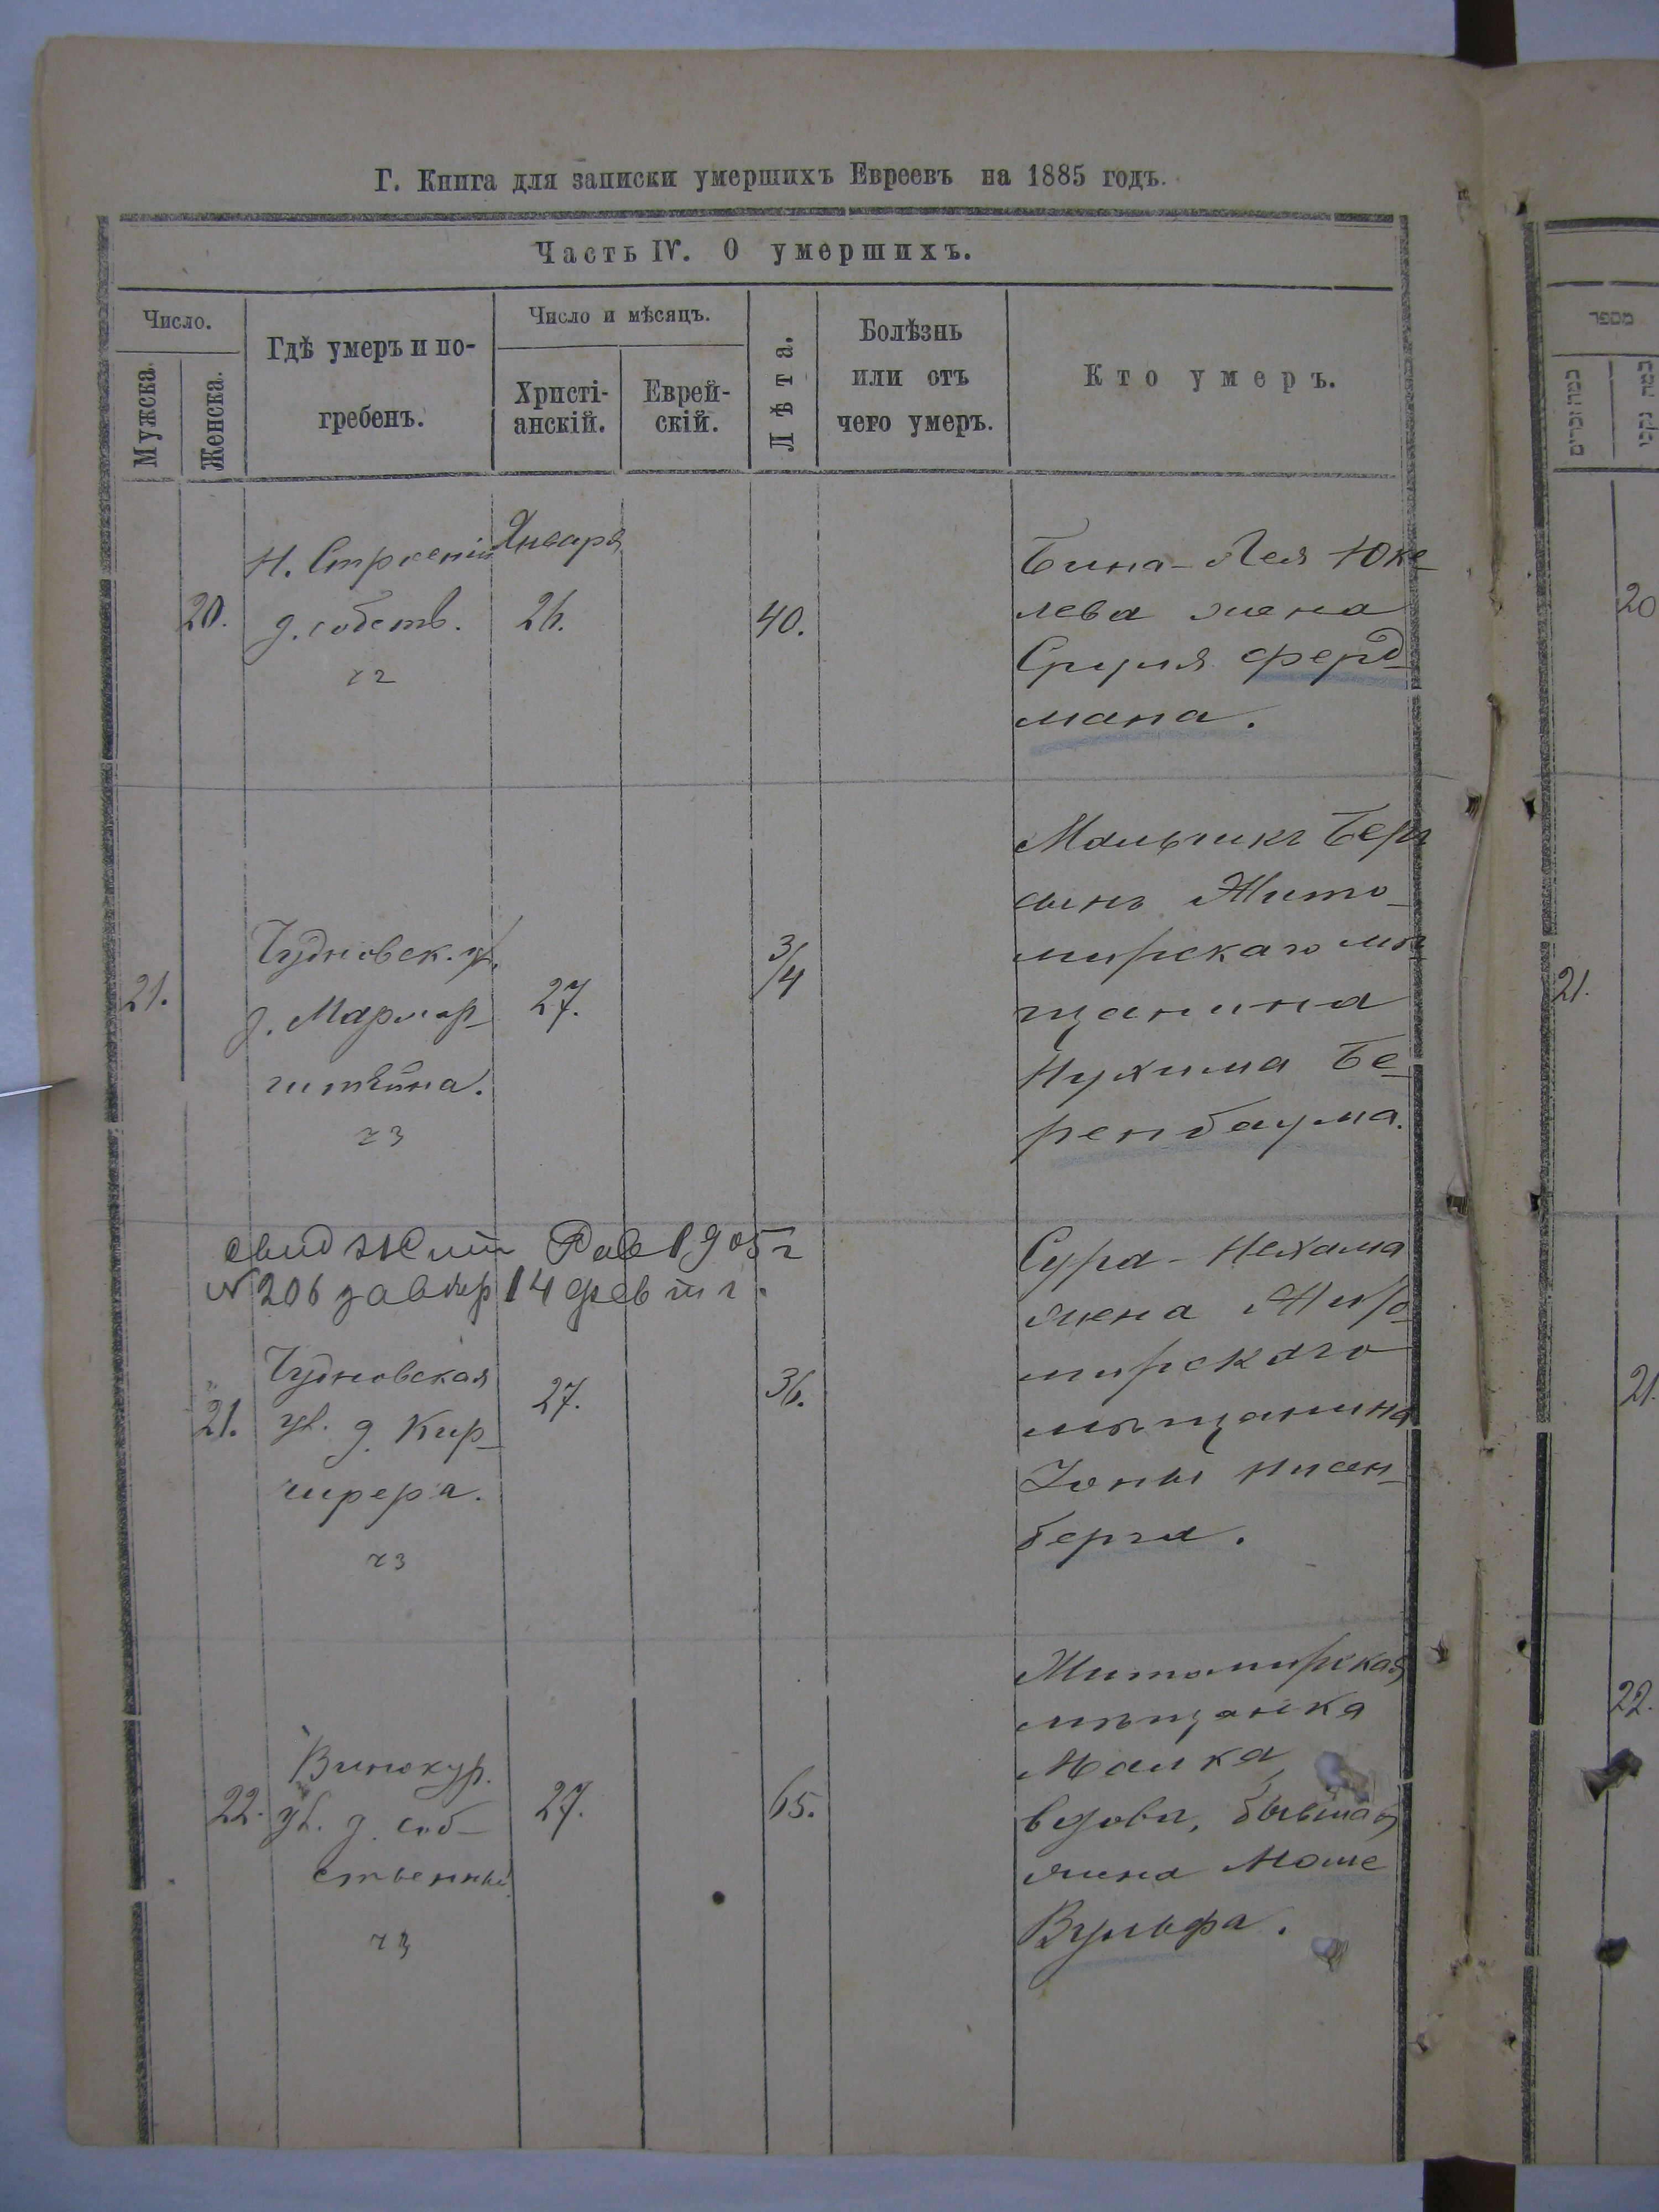 Г. Книга для записки умершихъ Евреевъ на 1885 годъ.
Часть IV. О умершихъ.
Число.
Мужска.
Женска.
Гдѣ умеръ и по-
гребенъ.
Число и мѣсяцъ.
Христі-
анскій.
Еврей-
скій.
Лѣта.
Болѣзнь
или отъ
чего умеръ.
Кто умеръ.
מספר
כמה זכרים
20.
Н. Строеніи
д. собств.
Января
26.
40.
Бина-Лея Юке-
лева жена
Сруля Ферд-
мана.
20
21.
Чудновск. ул.
д. Мармор-
штейна.
23
27.
3/4
Мальчикъ Беръ
сынъ Жито-
мирскаго мѣ-
щанина
Нухима Бе-
ренбаума.
21.
свид Жит Рав 1905 г
№ 206 14 фев т г.
21.
Чудновская
ул. д. Кир-
ширера.
23
27.
36.
Сура-Нехама
жена Жито-
мирскаго
мѣщанина
Іоны Нисен-
берга.
21.
22.
Винокур.
ул. д. соб-
ственный.
23
27.
65.
Житомирская
мѣщанка
Малка
вдова, бывшая
жена Моше
Вульфа.
22.